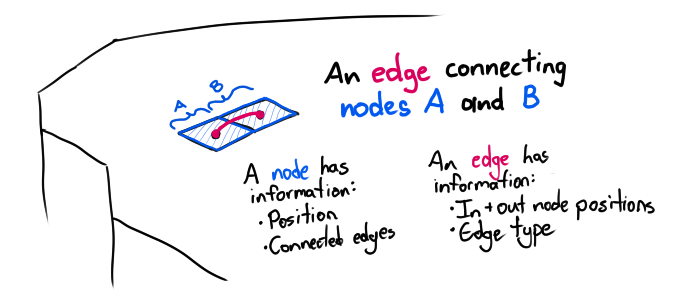 An edge connecting
nodes A and B
A
B
A node has
information:
· Position
· Connected edges
An edge has
information:
· In + out node positions
· Edge type